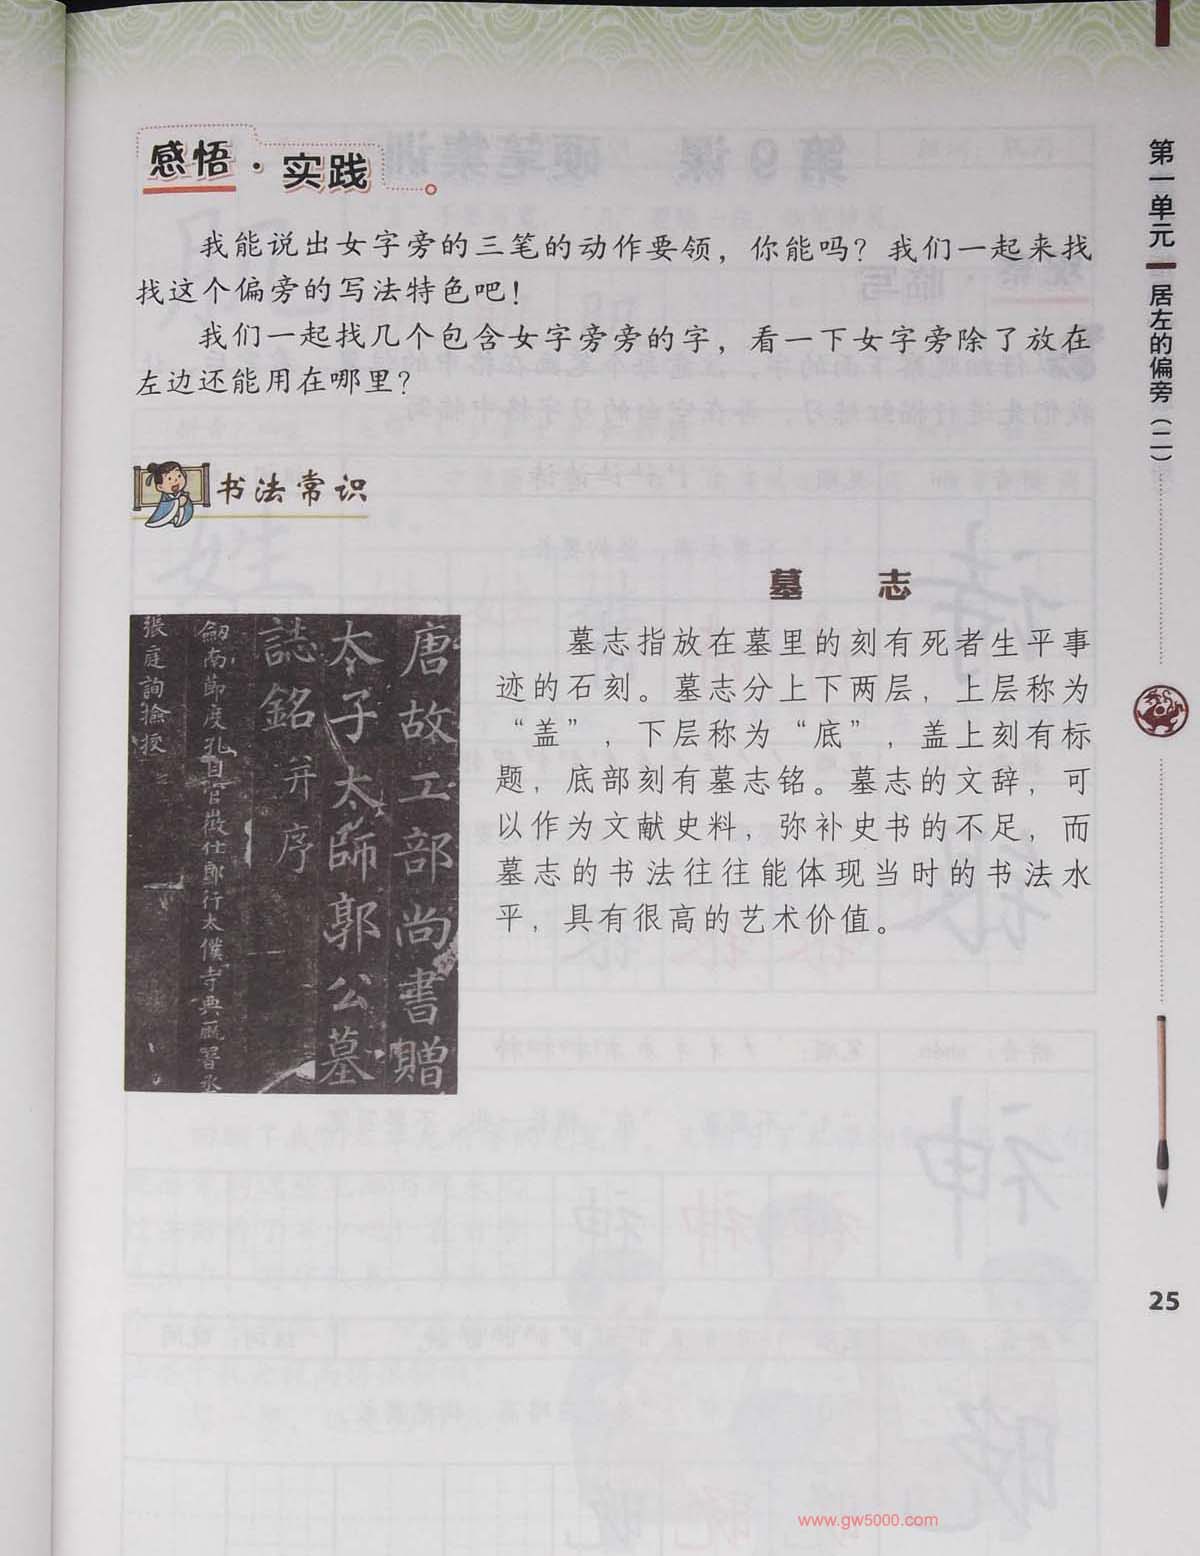 感悟·实践
我能说出女字旁的三笔的动作要领，你能吗？我们一起来找
找这个偏旁的写法特色吧！
我们一起找几个包含女字旁旁的字，看一下女字旁除了放在
左边还能用在哪里？
书法常识
墓 志
墓志指放在墓里的刻有死者生平事
迹的石刻。墓志分上下两层，上层称为
“盖”，下层称为“底”，盖上刻有标
题，底部刻有墓志铭。墓志的文辞，可
以作为文献史料，弥补史书的不足，而
墓志的书法往往能体现当时的书法水
平，具有很高的艺术价值。
唐故工部尚書贈
太子太師郭公墓
誌銘并序
劒南節度孔目官徵仕郎行太僕寺典廄署丞
張庭詢撿校
第一单元
居左的偏旁（二）
25
www.gw5000.com